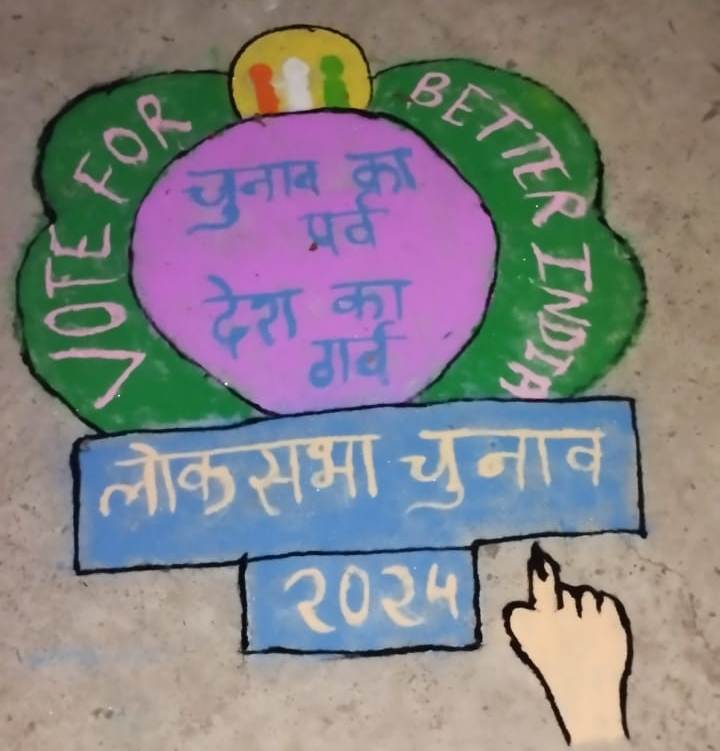 VOTE FOR
BETTER INDIA
चुनाव का
पर्व
देश का
गर्व
लोकसभा चुनाव
२०२५